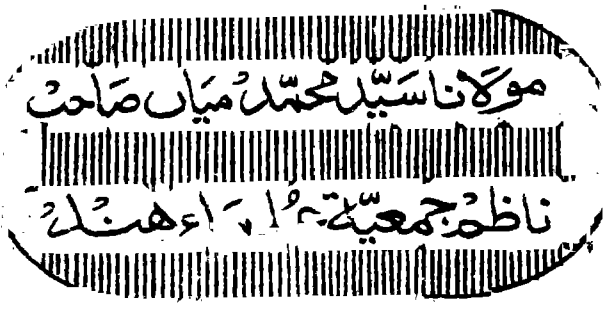 مولانا سیّد محمّد میاں صاحب
ناظم جمعیّۃ علماء ھند